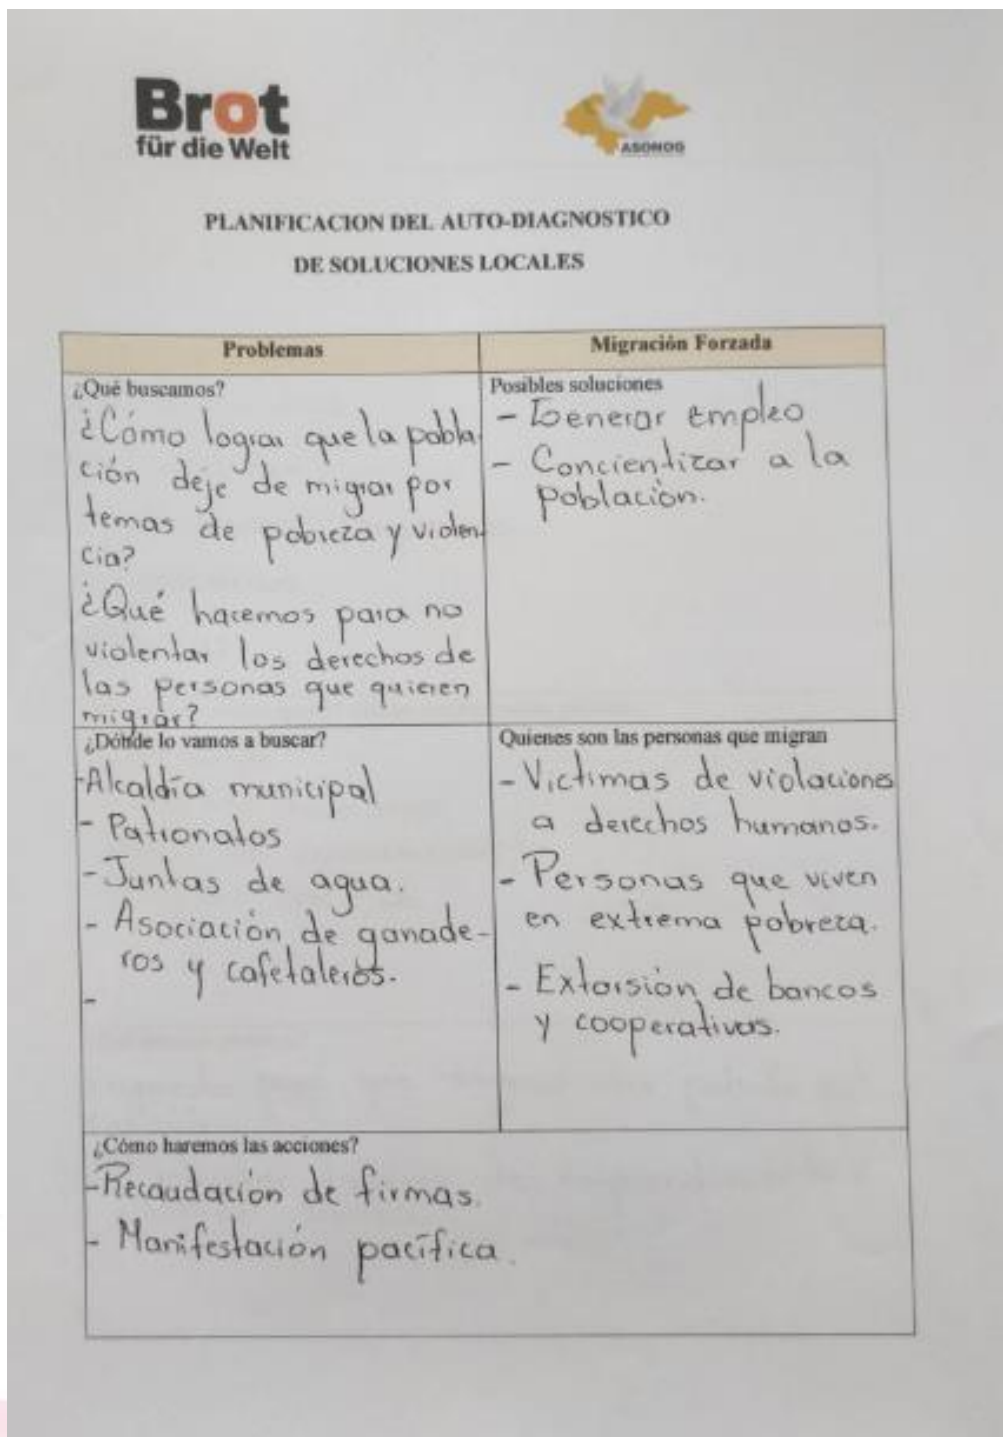 Brot
für die Welt
ASONOG
PLANIFICACION DEL AUTO-DIAGNOSTICO
DE SOLUCIONES LOCALES
Problemas
Migración Forzada
¿Qué buscamos?
¿Cómo lograr que la pobla
ción deje de migrar por
temas de pobreza y violen
cia?
¿Qué hacemos para no
violentar los derechos de
las personas que quieren
migrar?
Posibles soluciones
- Generar empleo
- Concientizar a la
población.
¿Dónde lo vamos a buscar?
-Alcaldía municipal
- Patronatos
- Juntas de agua.
- Asociación de ganade-
ros y cafetaleros.
-
Quienes son las personas que migran
- Victimas de violaciones
a derechos humanos.
- Personas que viven
en extrema pobreza.
- Extorsión de bancos
y cooperativas.
¿Cómo haremos las acciones?
-Recaudación de firmas.
- Manifestación pacífica.